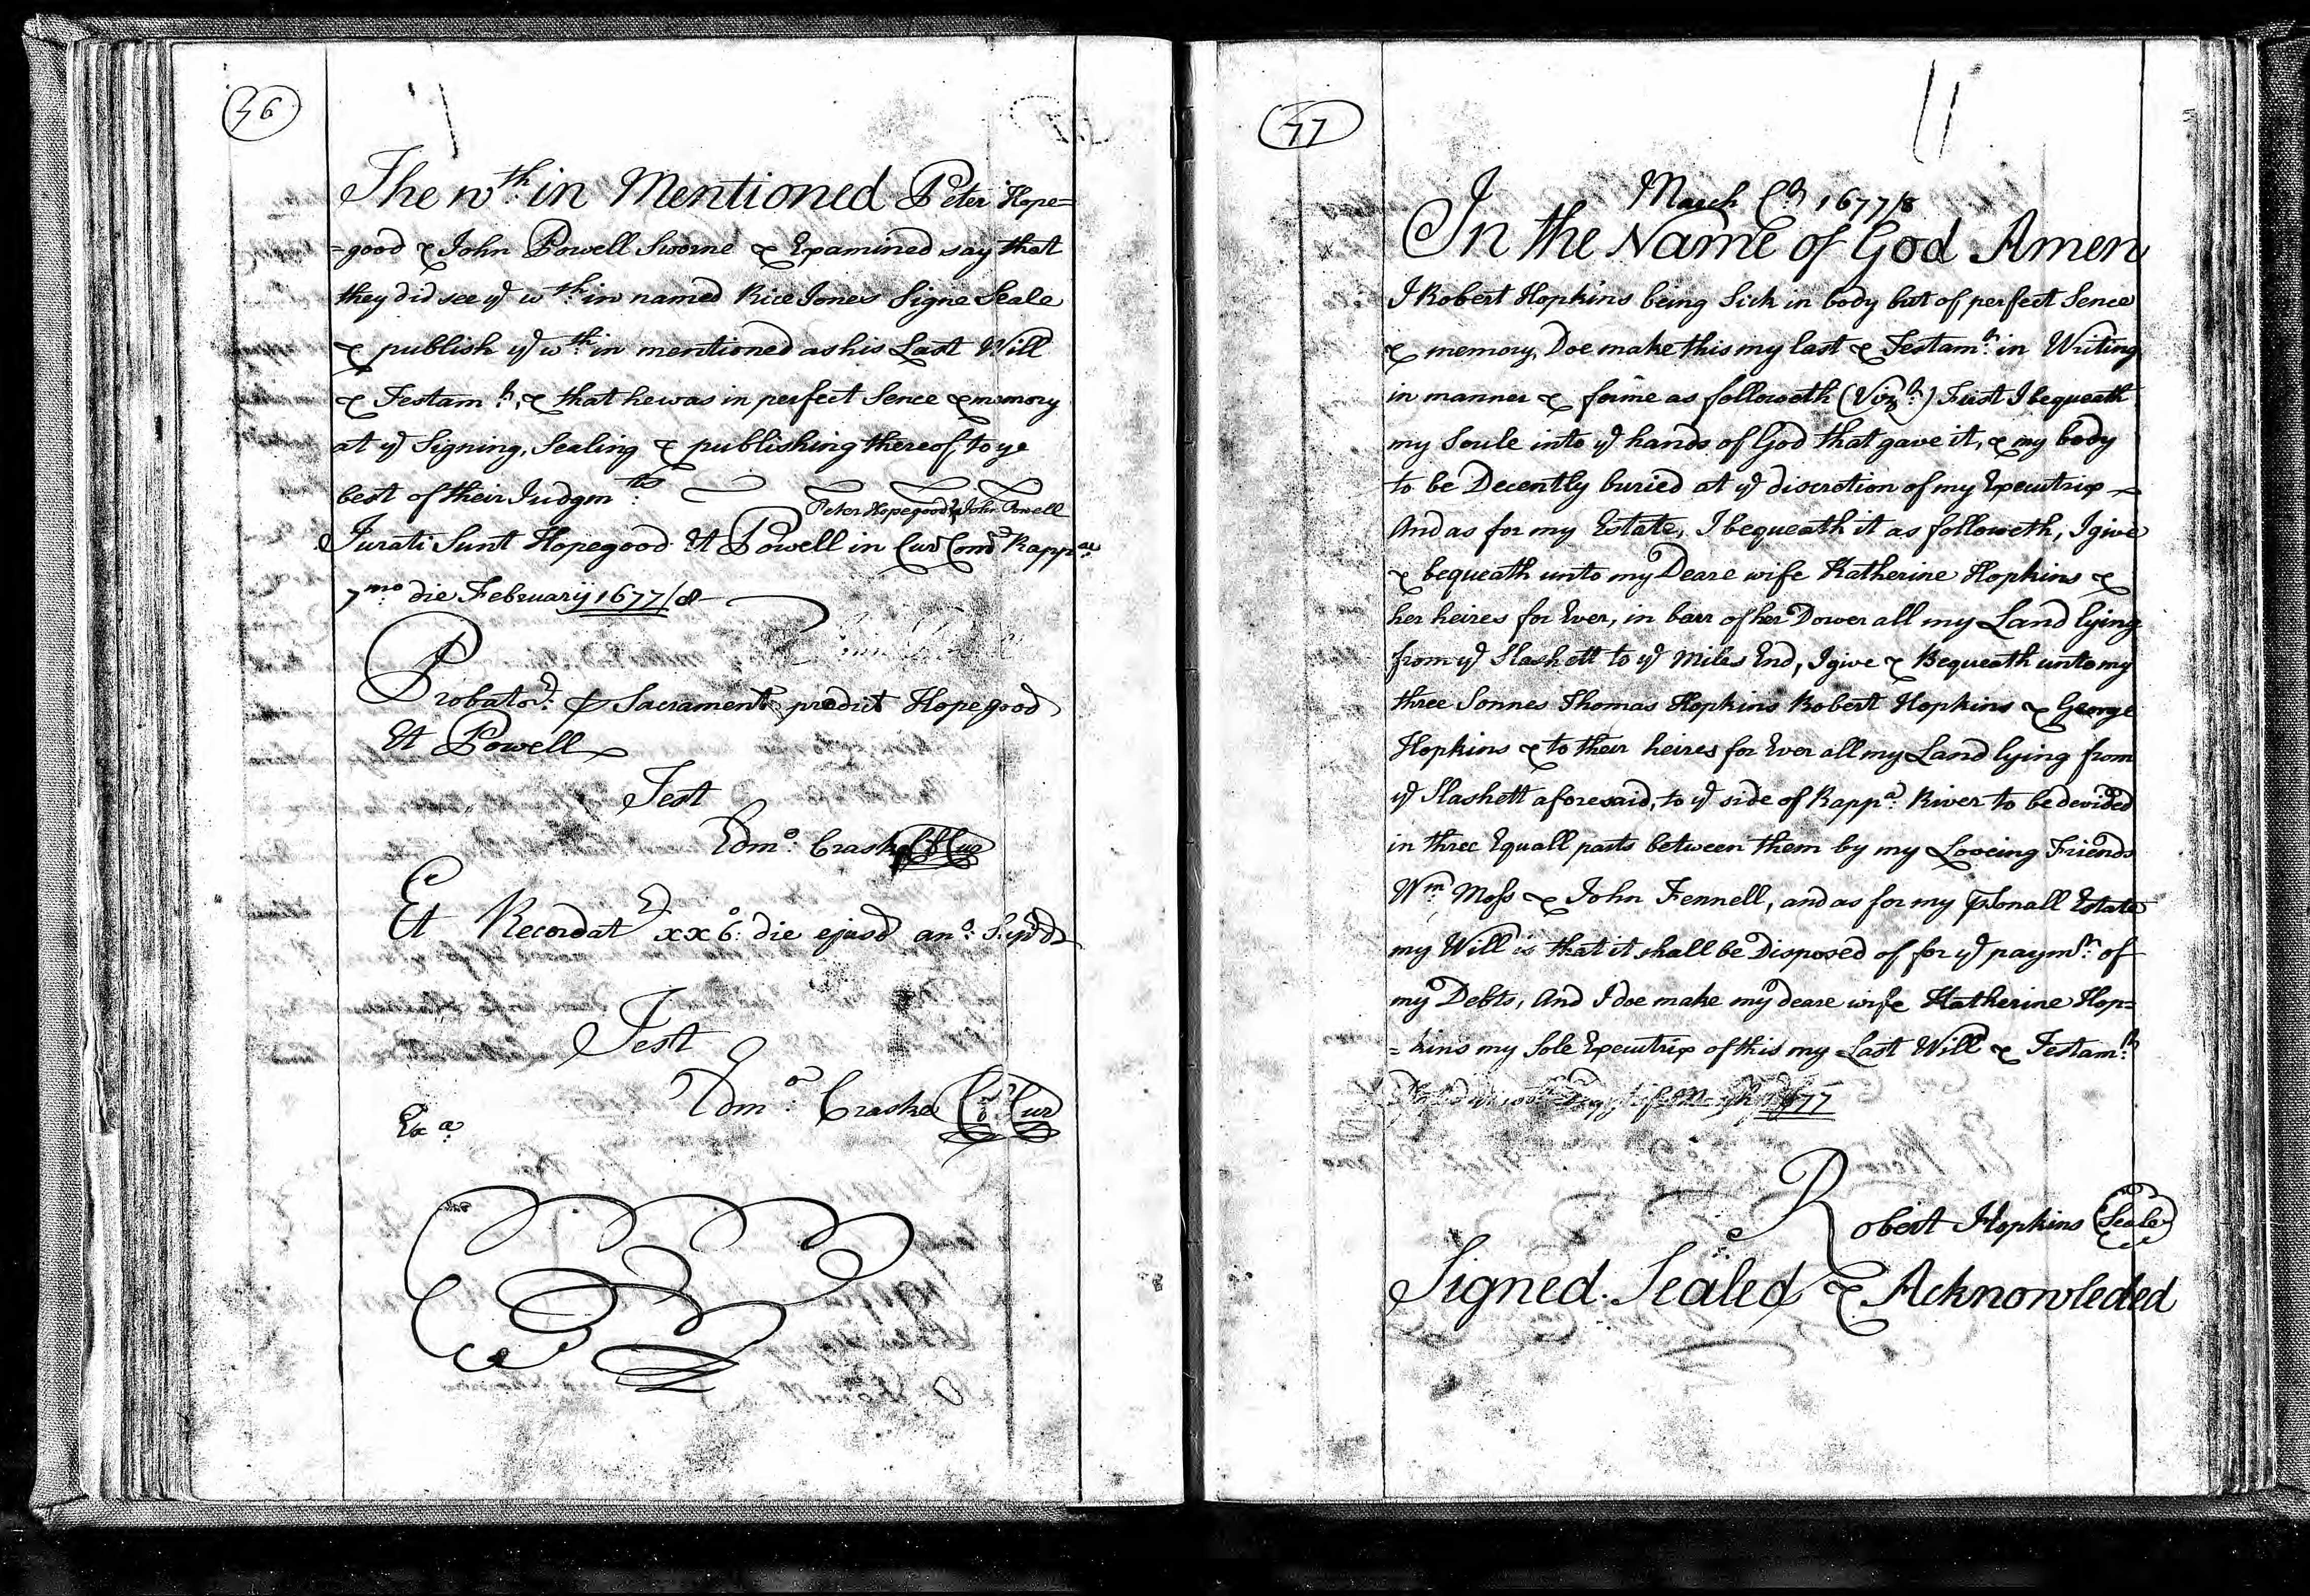 76
The wth in Mentioned Peter Hope=
=good & John Powell Sworne & Examined say that
they did see ye wth in named Rice Jones Signe Seale
& publish ye wth in mentioned as his Last Will
& Testamt, & that he was in perfect Sence & memory
at ye Signing, Sealing & publishing thereof, to ye
best of their Judgmts
Peter Hopegood & John Powell
Jurati Sunt Hopegood Et Powell in Cur Com Rappae
7mo die February 1677/8
Probatr. p Sacrament predict Hopegood
Et Powell
Test
Edmo. Craske Cl Cur
Et Recordat xx6o: die ejusd ano: Supd
Test
Edmo: Craske Cl Cur
Exa
77
March Ct 1677/8
In the Name of God Amen
I Robert Hopkins being Sick in body but of perfect Sence
& memory, Doe make this my last & Testamt. in Writing
in manner & forme as followeth (Vizt.) First I bequeath
my Soule into ye hands of God that gave it, & my body
to be Decently buried at ye discretion of my Executrix
And as for my Estate, I bequeath it as followeth, I give
& bequeath unto my Deare wife Katherine Hopkins &
her heires for Ever, in barr of her Dower all my Land lying
from ye Slashett to ye Miles End, I give & Bequeath unto my
three Sonnes Thomas Hopkins Robert Hopkins & George
Hopkins & to their heires for Ever all my Land lying from
ye Slashett aforesaid, to ye side of Rappa. River to be devided
in three Equall parts between them by my Loveing Friends
Wm. Moss & John Fennell, and as for my psonall Estate
my Will is that it shall be Disposed of for ye paymt. of
my Debts, And I doe make my deare wife Katherine Hop=
=kins my Sole Executrix of this my Last Will & Testamt.
1677
Robert Hopkins Seale
Signed. Sealed & Acknowleded